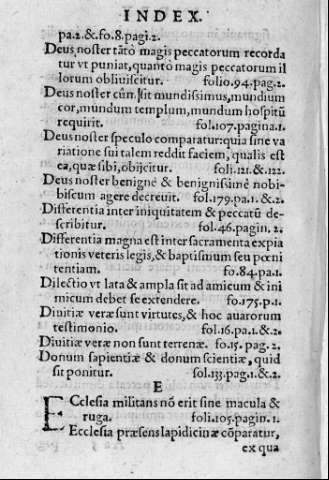 INDEX.
pa.2.&.fo.8.pagi.2.
Deus noster tātò magis peccatorum recorda
tur vt puniat, quantò magis peccatorum il
lorum obliuiscitur. folio.94.pag.2.
Deus noster cùm sit mundissimus, mundium
cor, mundum templum, mundum hospitiū
requirit. fol.107.pagina.1.
Deus noster speculo comparatur: quia sine va
riatione sui talem reddit faciem, qualis est
ea, quæ sibi, obijcitur. foli.121.&.122.
Deus noster benignè & benignissimè nobi-
biscum agere decreuit. fol.179.pa.1.&.2.
Differentia inter iniquitatem & peccatū de-
scribitur. fol.46.pagin.2.
Differentia magna est inter sacramenta expia
tionis veteris legis, & baptismum seu pœni
tentiam. fo.84.pa.1.
Dilectio vt lata & ampla sit ad amicum & ini
micum debet se extendere. fo.175.p.1.
Diuitiæ veræ sunt virtutes, & hoc auarorum
testimonio. fol.16.pa.1.&.2.
Diuitiæ veræ non sunt terrenæ. fo.15.pag.2.
Donum sapientiæ & donum scientiæ, quid
sit ponitur. fol.133.pag.1.&.2.
E
Ecclesia militans nō erit sine macula &
ruga. foli.105.pagin.1.
Ecclesia præsens lapidicinæ cōparatur,
ex qua